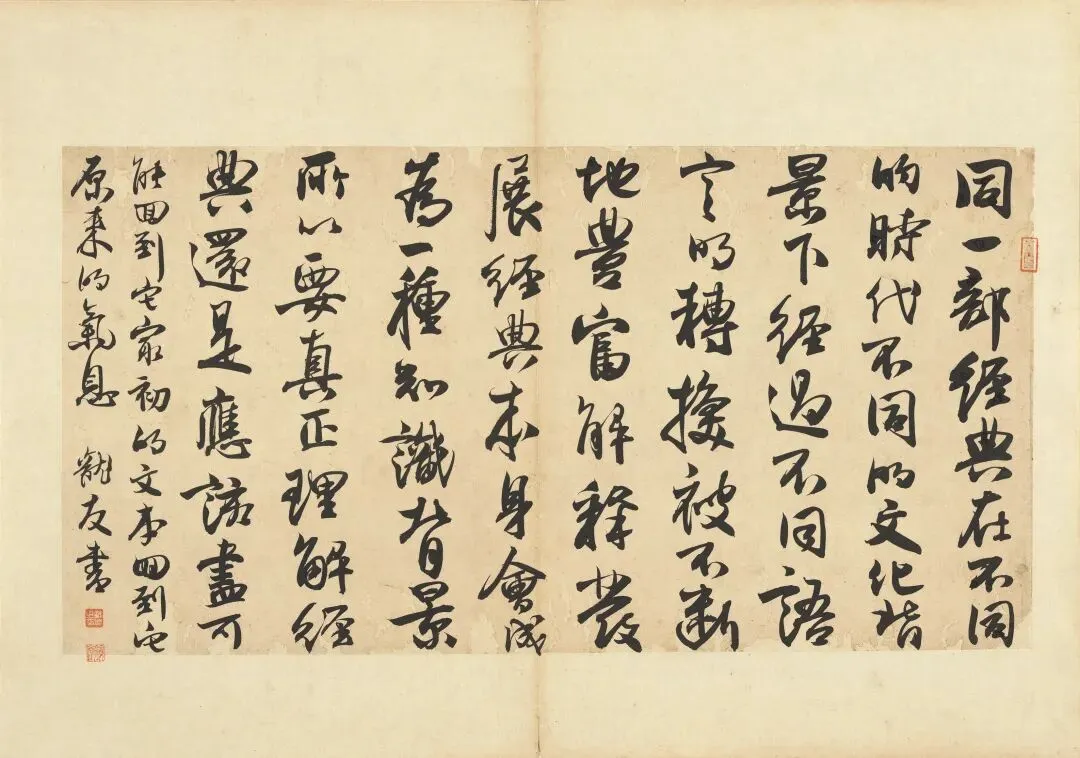 同一部經典在不同
的時代不同的文化背
景下經過不同語
言的轉換被不斷
地豐富解釋發
展經典本身會成
為一種知識背景
所以要真正理解經
典還是應該盡可
能回到它最初的文本回到它
原來的氣息 友書